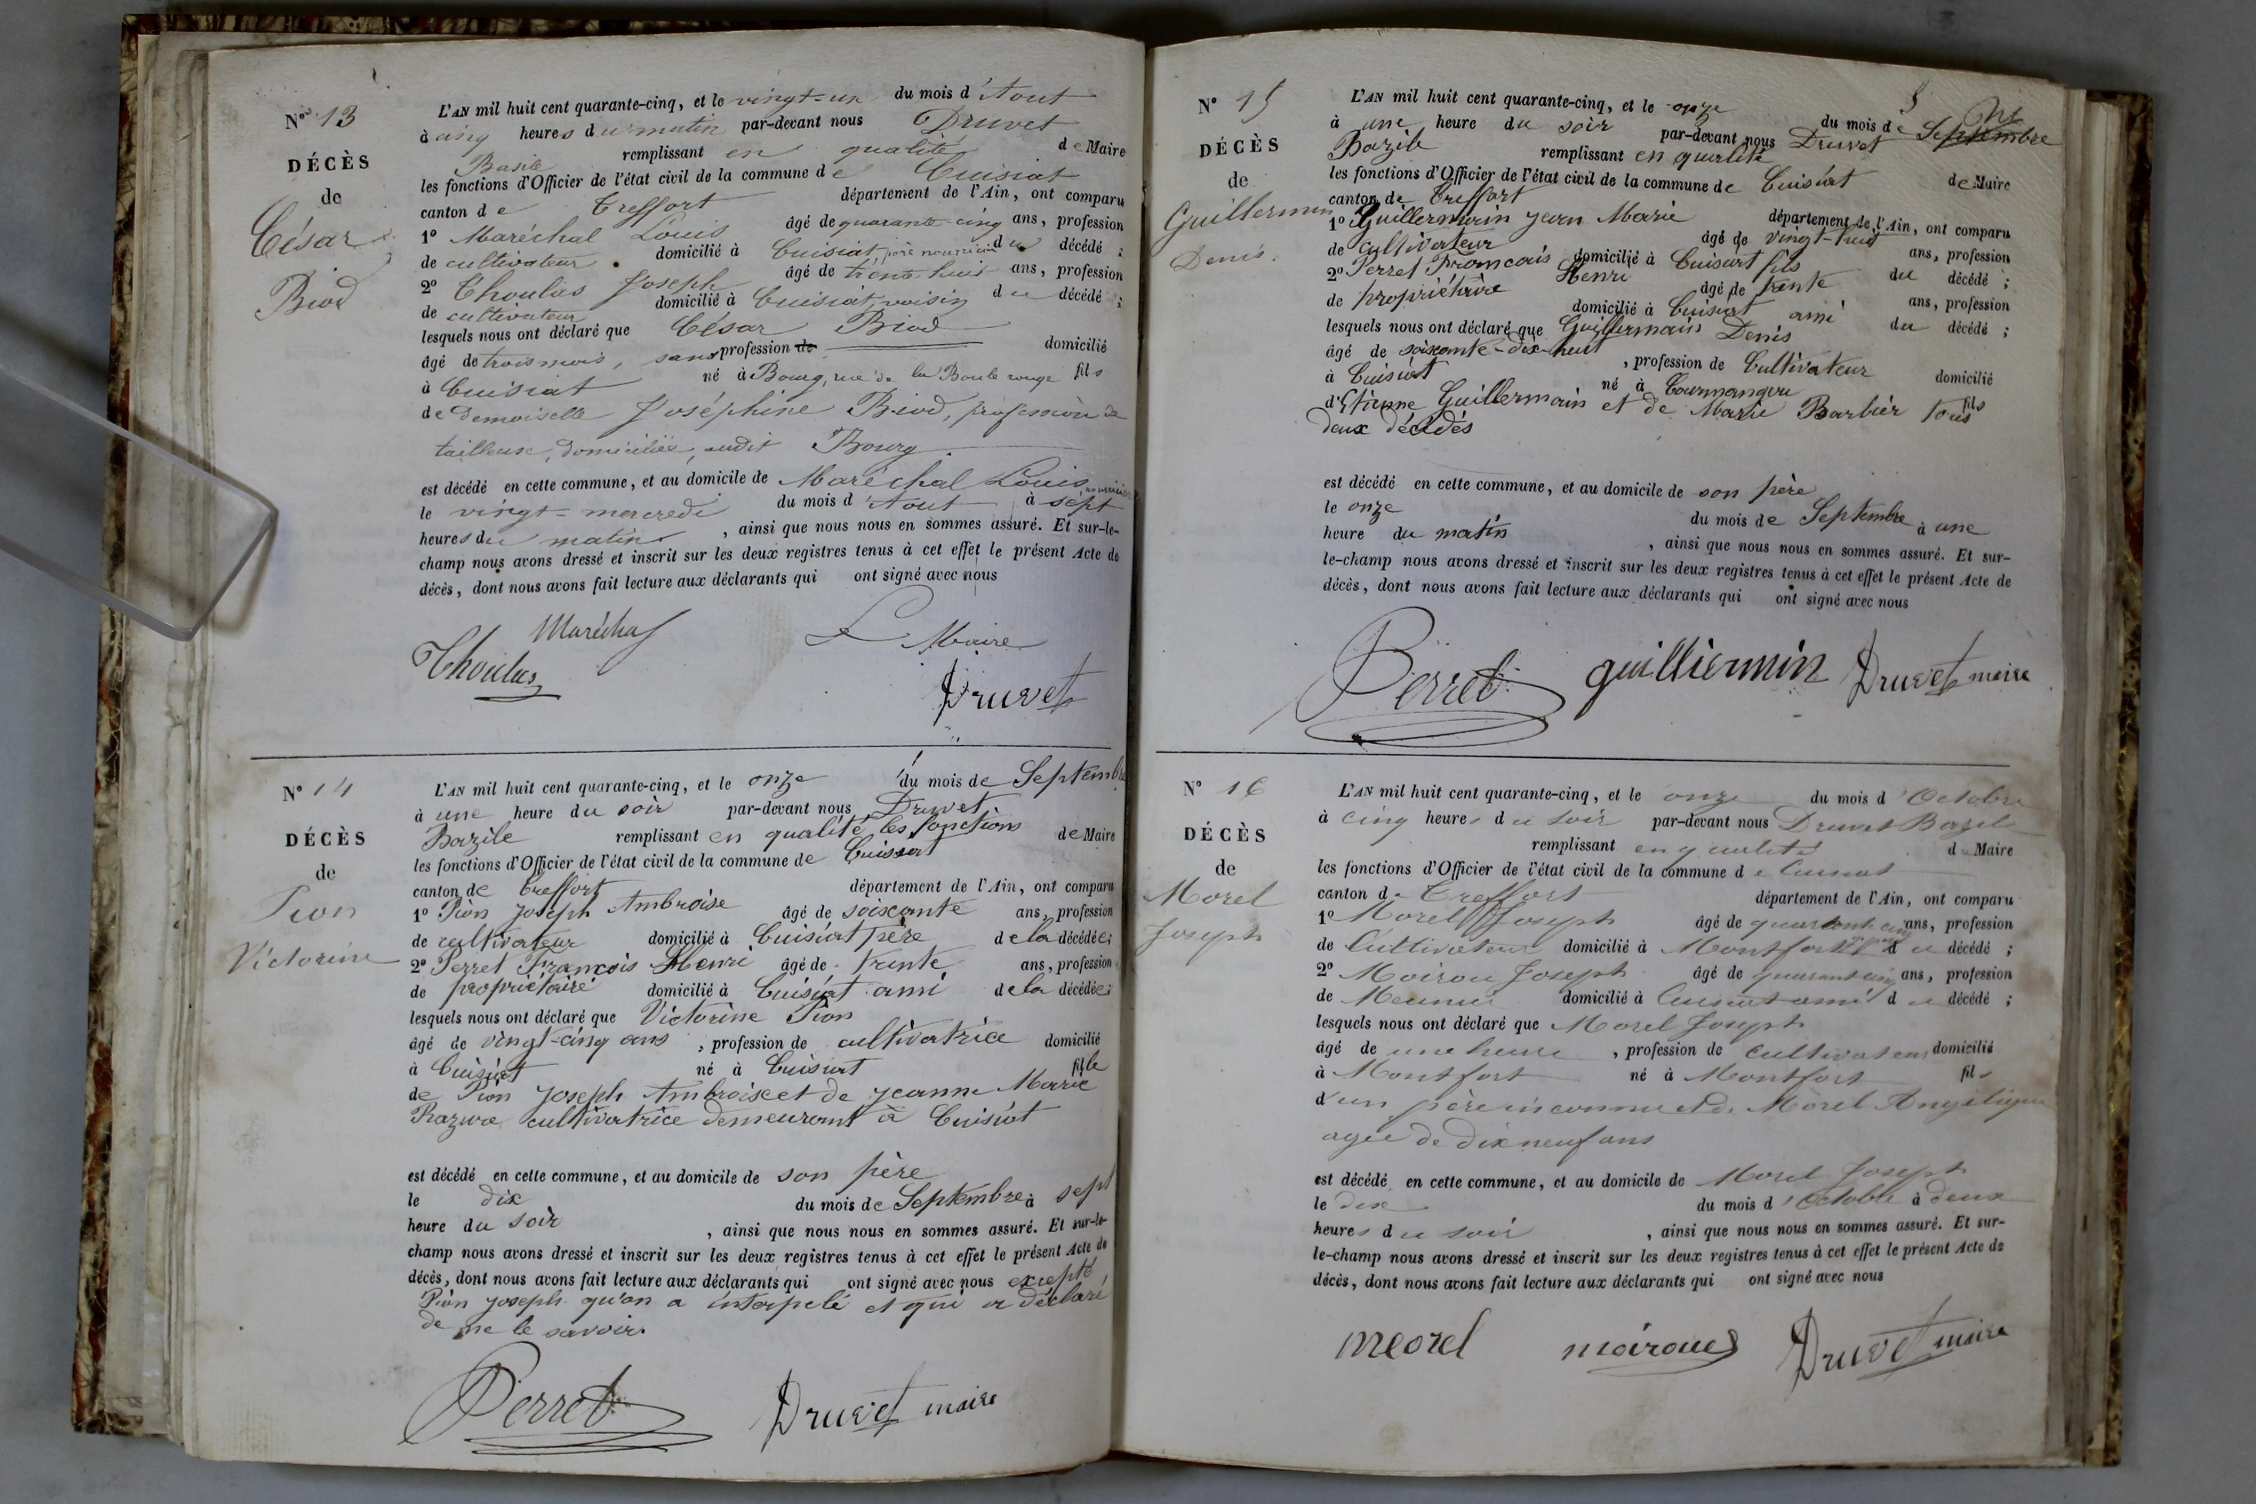 N° 13
DÉCÈS
de
César
Biod
L'AN mil huit cent quarante-cinq, et le vingt-un du mois d'Aout
à cinq heures du matin par-devant nous Druvet
Basile remplissant en qualité de Maire
les fonctions d'Officier de l'état civil de la commune de Cuisiat
canton de Treffort département de l'Ain, ont comparu
1° Maréchal Louis âgé de quarante-cinq ans, profession
de cultivateur domicilié à Cuisiat, père nourricier du décédé ;
2° Thoulas Joseph âgé de trente huit ans, profession
de cultivateur domicilié à Cuisiat, voisin du décédé ;
lesquels nous ont déclaré que César Biod
âgé de trois mois, sans profession de domicilié
à Cuisiat né à Bourg, rue de la Boule rouge fils
de Demoiselle Joséphine Biod, profession de
tailleuse, domiciliée, audit Bourg
est décédé en cette commune, et au domicile de Maréchal Louis, nourricier
le vingt-mercredi du mois d'Aout à sept
heures du matin, ainsi que nous nous en sommes assuré. Et sur-le-
champ nous avons dressé et inscrit sur les deux registres tenus à cet effet le présent Acte de
décès, dont nous avons fait lecture aux déclarants qui ont signé avec nous
Maréchal
Le Maire
Thoulas
Druvet
N° 14
DÉCÈS
de
Pion
Victorine
L'AN mil huit cent quarante-cinq, et le onze du mois de Septembre
à une heure du soir par-devant nous Druvet
Bazile remplissant en qualité les fonctions de Maire
les fonctions d'Officier de l'état civil de la commune de Cuisiat
canton de Treffort département de l'Ain, ont comparu
1° Pion Joseph Ambroise âgé de soixante ans, profession
de cultivateur domicilié à Cuisiat père de la décédée ;
2° Perret François Henri âgé de trente ans, profession
de propriétaire domicilié à Cuisiat ami de la décédée ;
lesquels nous ont déclaré que Victorine Pion
âgé de vingt-cinq ans, profession de cultivatrice domicilié
à Cuisiat né à Cuisiat fille
de Pion Joseph Ambroise et de Jeanne Marie
cultivatrice demeurant à Cuisiat
est décédé en cette commune, et au domicile de son père
le dix du mois de Septembre à sept
heure du soir, ainsi que nous nous en sommes assuré. Et sur-le-
champ nous avons dressé et inscrit sur les deux registres tenus à cet effet le présent Acte de
décès, dont nous avons fait lecture aux déclarants qui ont signé avec nous excepté
Pion Joseph qu'on a interpelé et qui a déclaré
de ne le savoir.
Perret
Druvet maire
N° 15
DÉCÈS
de
Guillermin
Denis.
L'AN mil huit cent quarante-cinq, et le onze du mois de Septembre
à une heure du soir par-devant nous Druvet
Bazile remplissant en qualité de Maire
les fonctions d'Officier de l'état civil de la commune de Cuisiat
canton de Treffort département de l'Ain, ont comparu
1° Guillermin Jean Marie âgé de vingt-huit ans, profession
de cultivateur domicilié à Cuisiat fils du décédé ;
2° Perret François Henri âgé de trente ans, profession
de propriétaire domicilié à Cuisiat ami du décédé ;
lesquels nous ont déclaré que Guillermain Denis
âgé de soixante-dix-huit, profession de Cultivateur domicilié
à Cuisiat né à Courmangoux fils
d'Etienne Guillermain et de Marie Barbier tous
deux décédés
est décédé en cette commune, et au domicile de son père
le onze du mois de Septembre à une
heure du matin, ainsi que nous nous en sommes assuré. Et sur-
le-champ nous avons dressé et inscrit sur les deux registres tenus à cet effet le présent Acte de
décès, dont nous avons fait lecture aux déclarants qui ont signé avec nous
Perret
guilliermin
Druvet maire
N° 16
DÉCÈS
de
Morel
Joseph
L'AN mil huit cent quarante-cinq, et le onze du mois d'Octobre
à cinq heures du soir par-devant nous Druvet Bazile
remplissant en qualité d Maire
les fonctions d'Officier de l'état civil de la commune de Cuisiat
canton de Treffort département de l'Ain, ont comparu
1° Morel Joseph âgé de quarante cinq ans, profession
de Cultivateur domicilié à Montfort du décédé ;
2° Moirou Joseph âgé de quarante cinq ans, profession
de Meunier domicilié à Cuisiat ami du décédé ;
lesquels nous ont déclaré que Morel Joseph
âgé de une heure, profession de cultivateur domicilié
à Montfort né à Montfort fils
d'un père inconnu et de Morel Angélique
agée de dix neuf ans
est décédé en cette commune, et au domicile de Morel Joseph
le dix du mois d'Octobre à deux
heures du soir, ainsi que nous nous en sommes assuré. Et sur-
le-champ nous avons dressé et inscrit sur les deux registres tenus à cet effet le présent Acte de
décès, dont nous avons fait lecture aux déclarants qui ont signé avec nous
morel
moiroud
Druvet maire